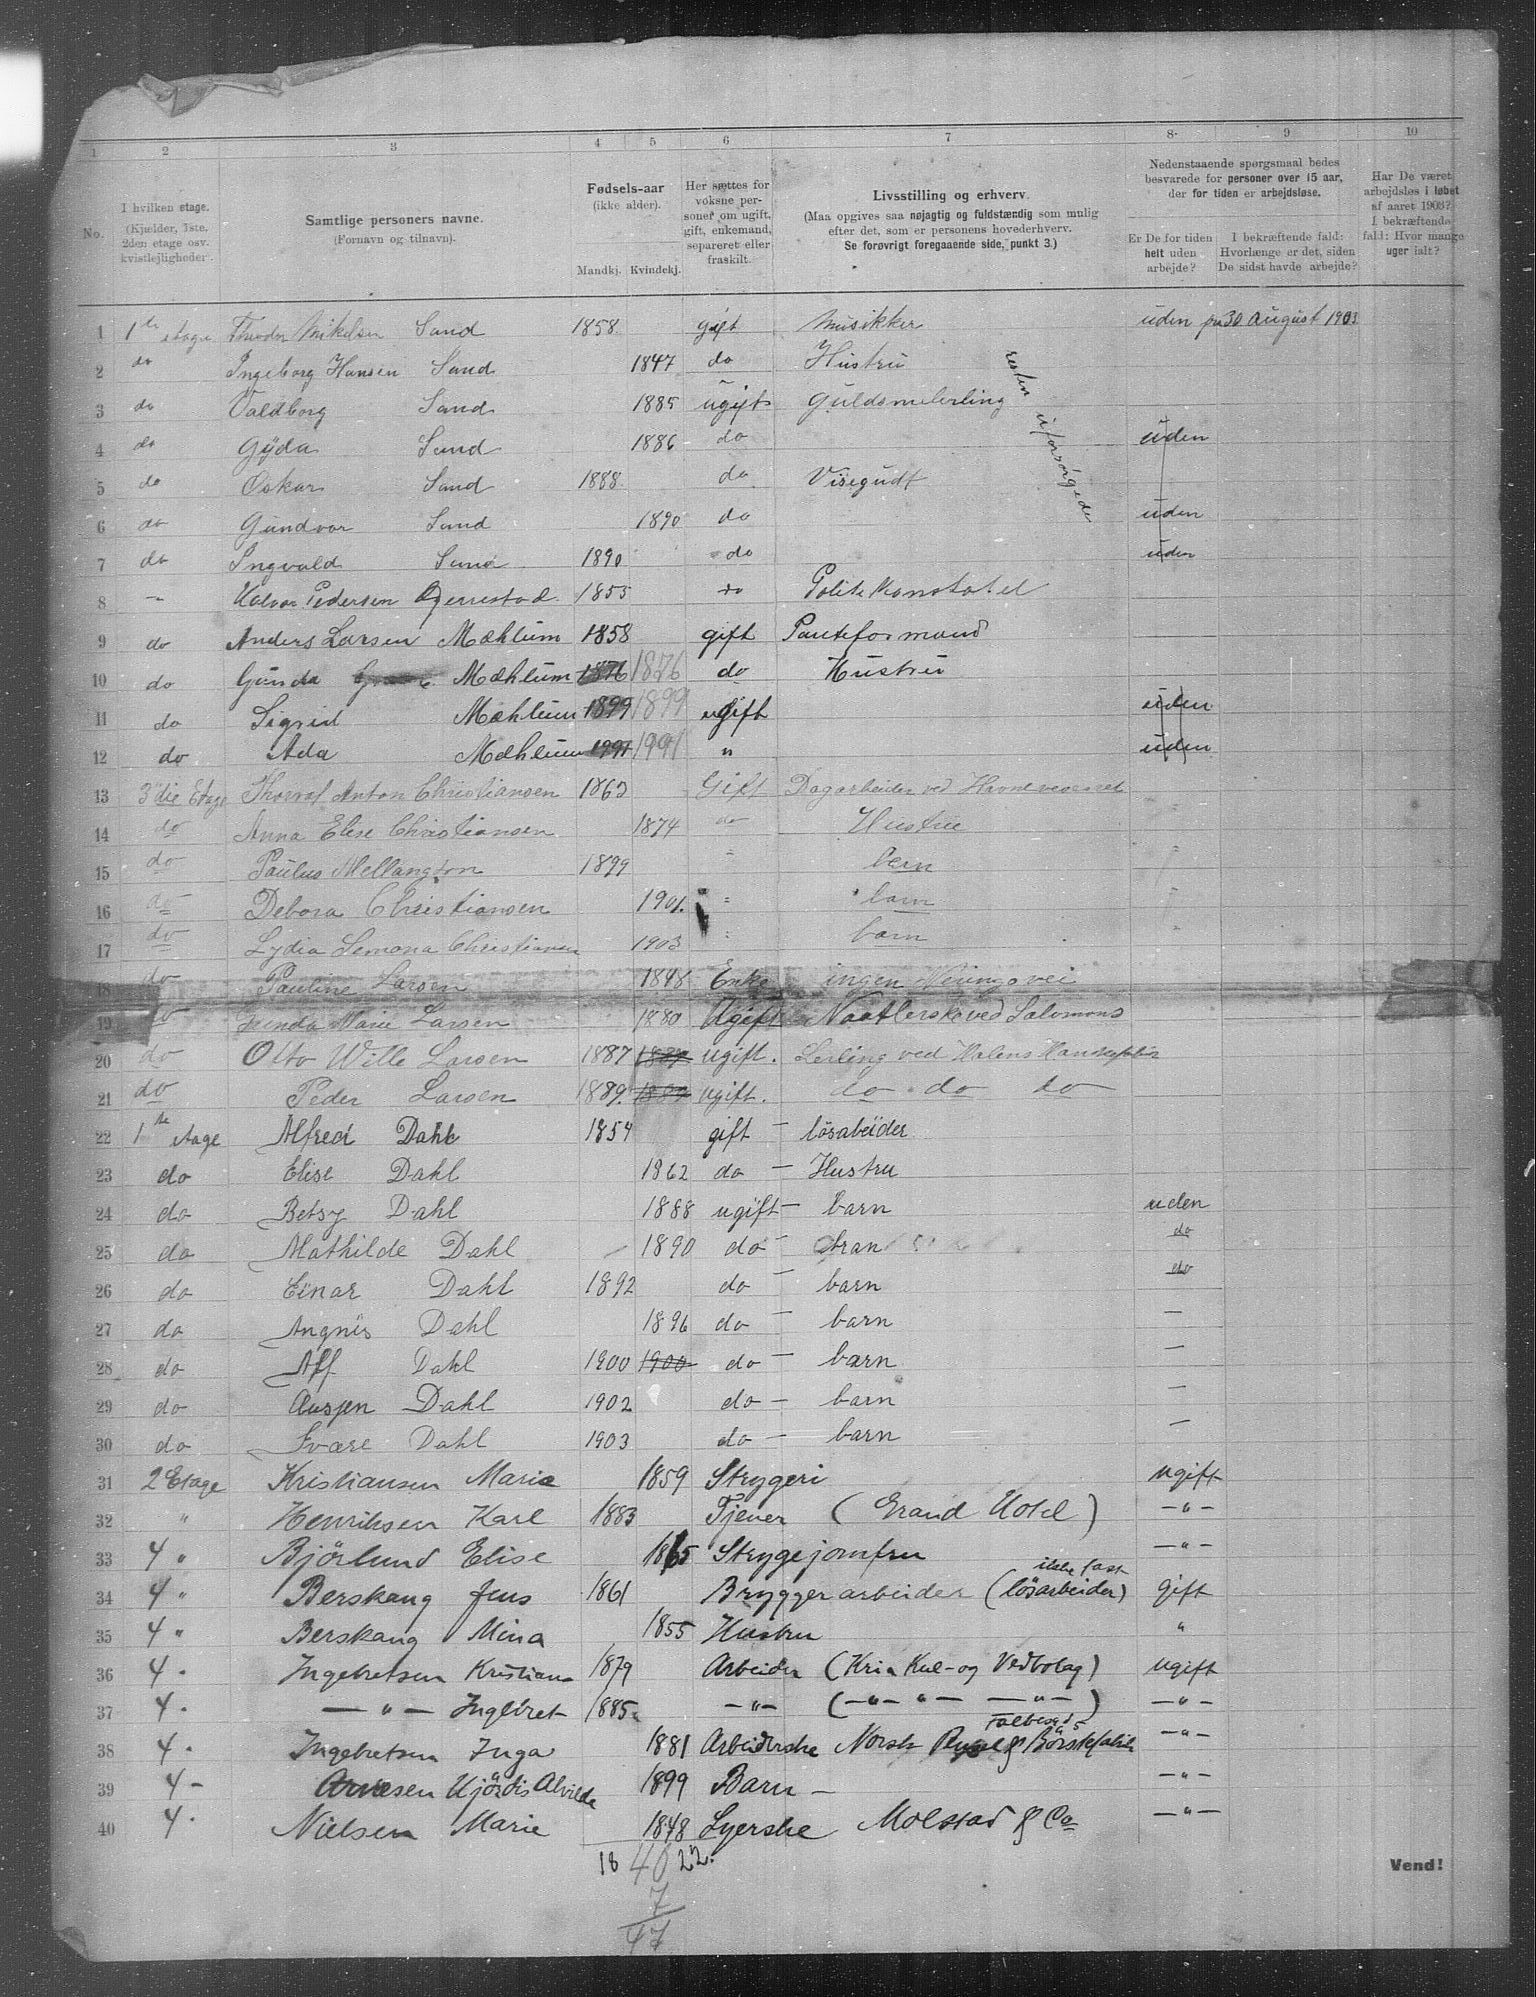 1 2 3 4 5 6 7 8· 9 10
No.
I hvilken etage.
(Kjælder, 1ste,
2den etage osv.
kvistlejligheder.
Samtlige personers navne.
(Fornavn og tilnavn).
Fødsels-aar
(ikke alder).
Mandkj. Kvindekj.
Her sættes for
voksne per-
soner om ugift,
gift, enkemand,
separeret eller
fraskilt.
Livsstilling og erhverv.
(Maa opgives saa nøjagtig og fuldstændig som mulig
efter det, som er personens hovederhverv.
Se forøvrigt foregaaende side, punkt 3.)
Nedenstaaende spørgsmaal bedes
besvarede for personer over 15 aar,
der for tiden er arbejdsløse.
Er De for tiden
helt uden
arbejde?
I bekræftende fald:
Hvorlænge er det, siden
De sidst havde arbejde?
Har De været
arbejdsløs i løbet
af aaret 1903?
I bekræftende
fald: Hvor mange
uger ialt?
1 1ste etage Theodor Mikelsen Sand 1858 gift Musikker uden 30 August 1903
2 do Ingeborg Hansen Sand 1847 do Hustru
3 do Valdborg Sand 1885 ugift Guldsmelerling
4 do Gÿda Sand 1886 do uden
5 do Oskar Sand 1888 do Visegudt
6 do Gundvor Sand 1890 do uden
7 do Ingvald Sand 1890 do uden
resten uforsørgede
8 " Halvor Pedersen Gjerrestad 1855 do Politikonstabel
9 do Anders Larsen Mæhlum 1858 gift Panteformand
10 do Gunda Mæhlum 1876 1876 do Hustru
11 do Sigrid Mæhlum 1899 1899 ugift uden
12 do Ada Mæhlum 1991 1991 " uden
13 3die Etage Thorvaf Anton Christiansen 1863 Gift Dagarbeider ved Havnevesenet
14 do Anna Elise Christiansen 1874 do Hustru
15 do Paulus Mellangton 1899 " barn
16 do Debora Christiansen 1901. " barn
17 do Lydia Semona Christiansen 1903 " barn
18 do Pauline Larsen 1848 Enke ingen Neringsvei
19 do Marie Larsen 1880 Ugift Naatlerske ved Salomons
20 do Otto Wille Larsen 1887 1887 ugift. Lerling ved Halens
21 do Peder Larsen 1889. 1889 ugift. do do do
22 1ste etage Alfred Dahl 1854 gift – løsabeider
23 do Elise Dahl 1862 do – Hustru
24 do Betsy Dahl 1888 ugift – barn uden
25 do Mathilde Dahl 1890 do – bran do
26 do Einar Dahl 1892 do – barn do
27 do Angnis Dahl 1896 do – barn –
28 do Alf Dahl 1900 1900 do – barn –
29 do Ausjen Dahl 1902 do – barn –
30 do Ivare Dahl 1903 do – barn –
31 2 Etage Kristiansen Marie 1859 Strygeri ugift
32 " Henriksen Karl 1883 Tjener (Grand Hotel) –"–
33 4 " Björlund Elise 1865 Strygejomfru –"–
34 4 " Berskaug Jens 1861 Bryggerarbeider (ikke fast løsarbeider) gift
35 4 " Berskaug Mina 1855 Hustru "
36 4 . Ingebretsen Kristian 1879 Arbeider (Kria Kul- og Vedbolag) ugift
37 4 . –"– Ingebret 1885 –"– (–"– "– –"–) –"–
38 4 . Ingebretsen Inga 1881 Arbeiderske Norsk & Börstefabrik –"–
39 4 – Arnesen Hjördis Alvilde 1899 Barn – –"–
40 4 . Nielsen Marie 1848 Syerske Molstad & Co –"–
18 40 22.
7
47
Vend!